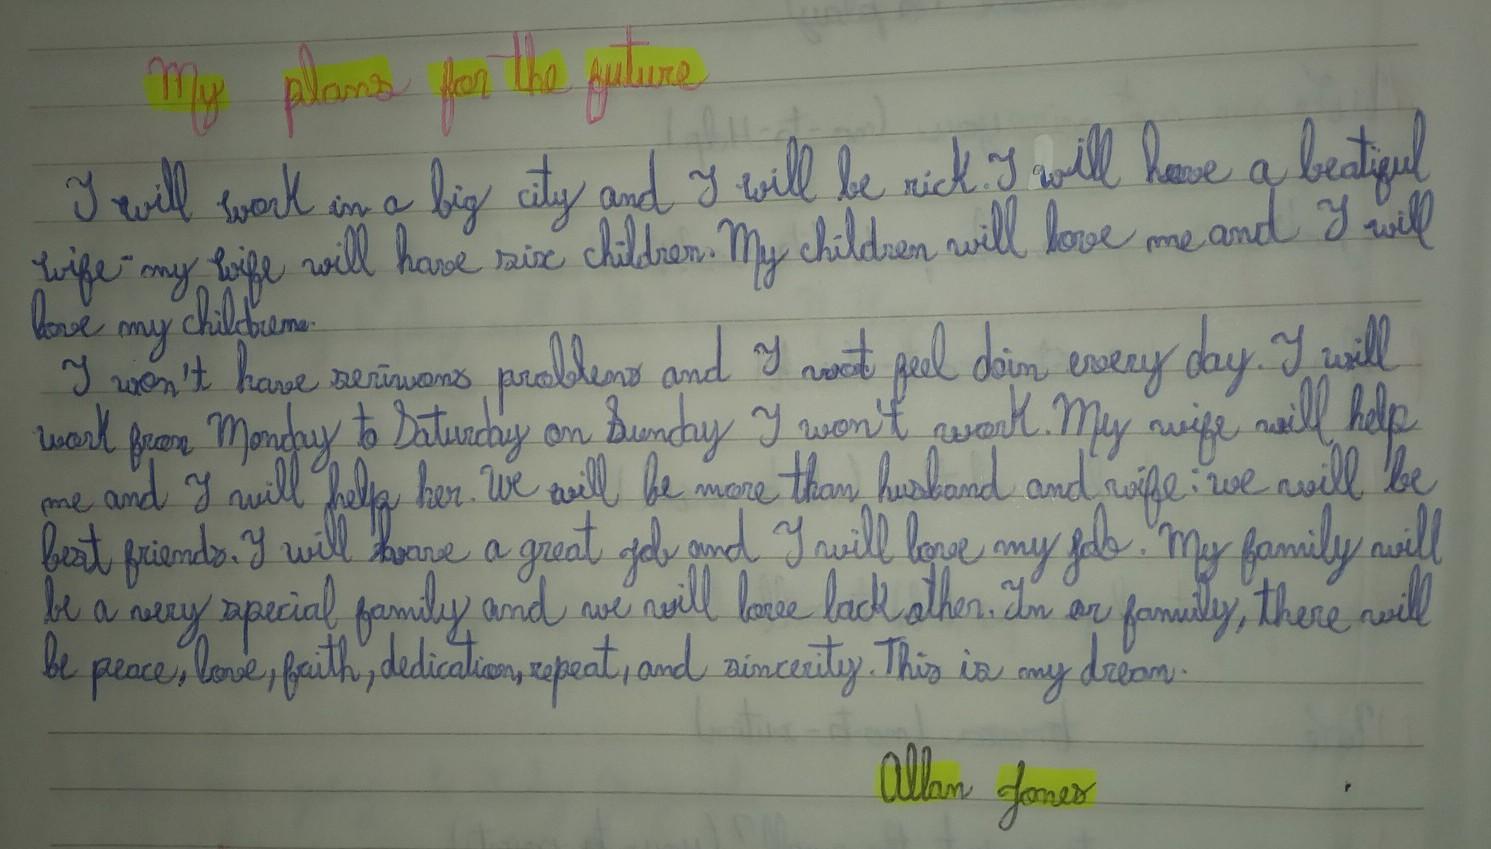 My plans for the future
I will work in a big city and I will be rich. I will have a beatiful
wife - my wife will have six children. My children will love me and I will
love my children.
I won't have seriwons problems and I wont feel doin every day. I will
work from Monday to Saturday on Sunday I won't work. My wife will help
me and I will help her. We will be more than husband and wife: we will be
best friends. I will have a great job and I will love my job. My family will
be a very special family and we will love lack other. In or family, there will
be peace, love, faith, dedication, repeat, and sincerity. This is my dream.
Allan Jones